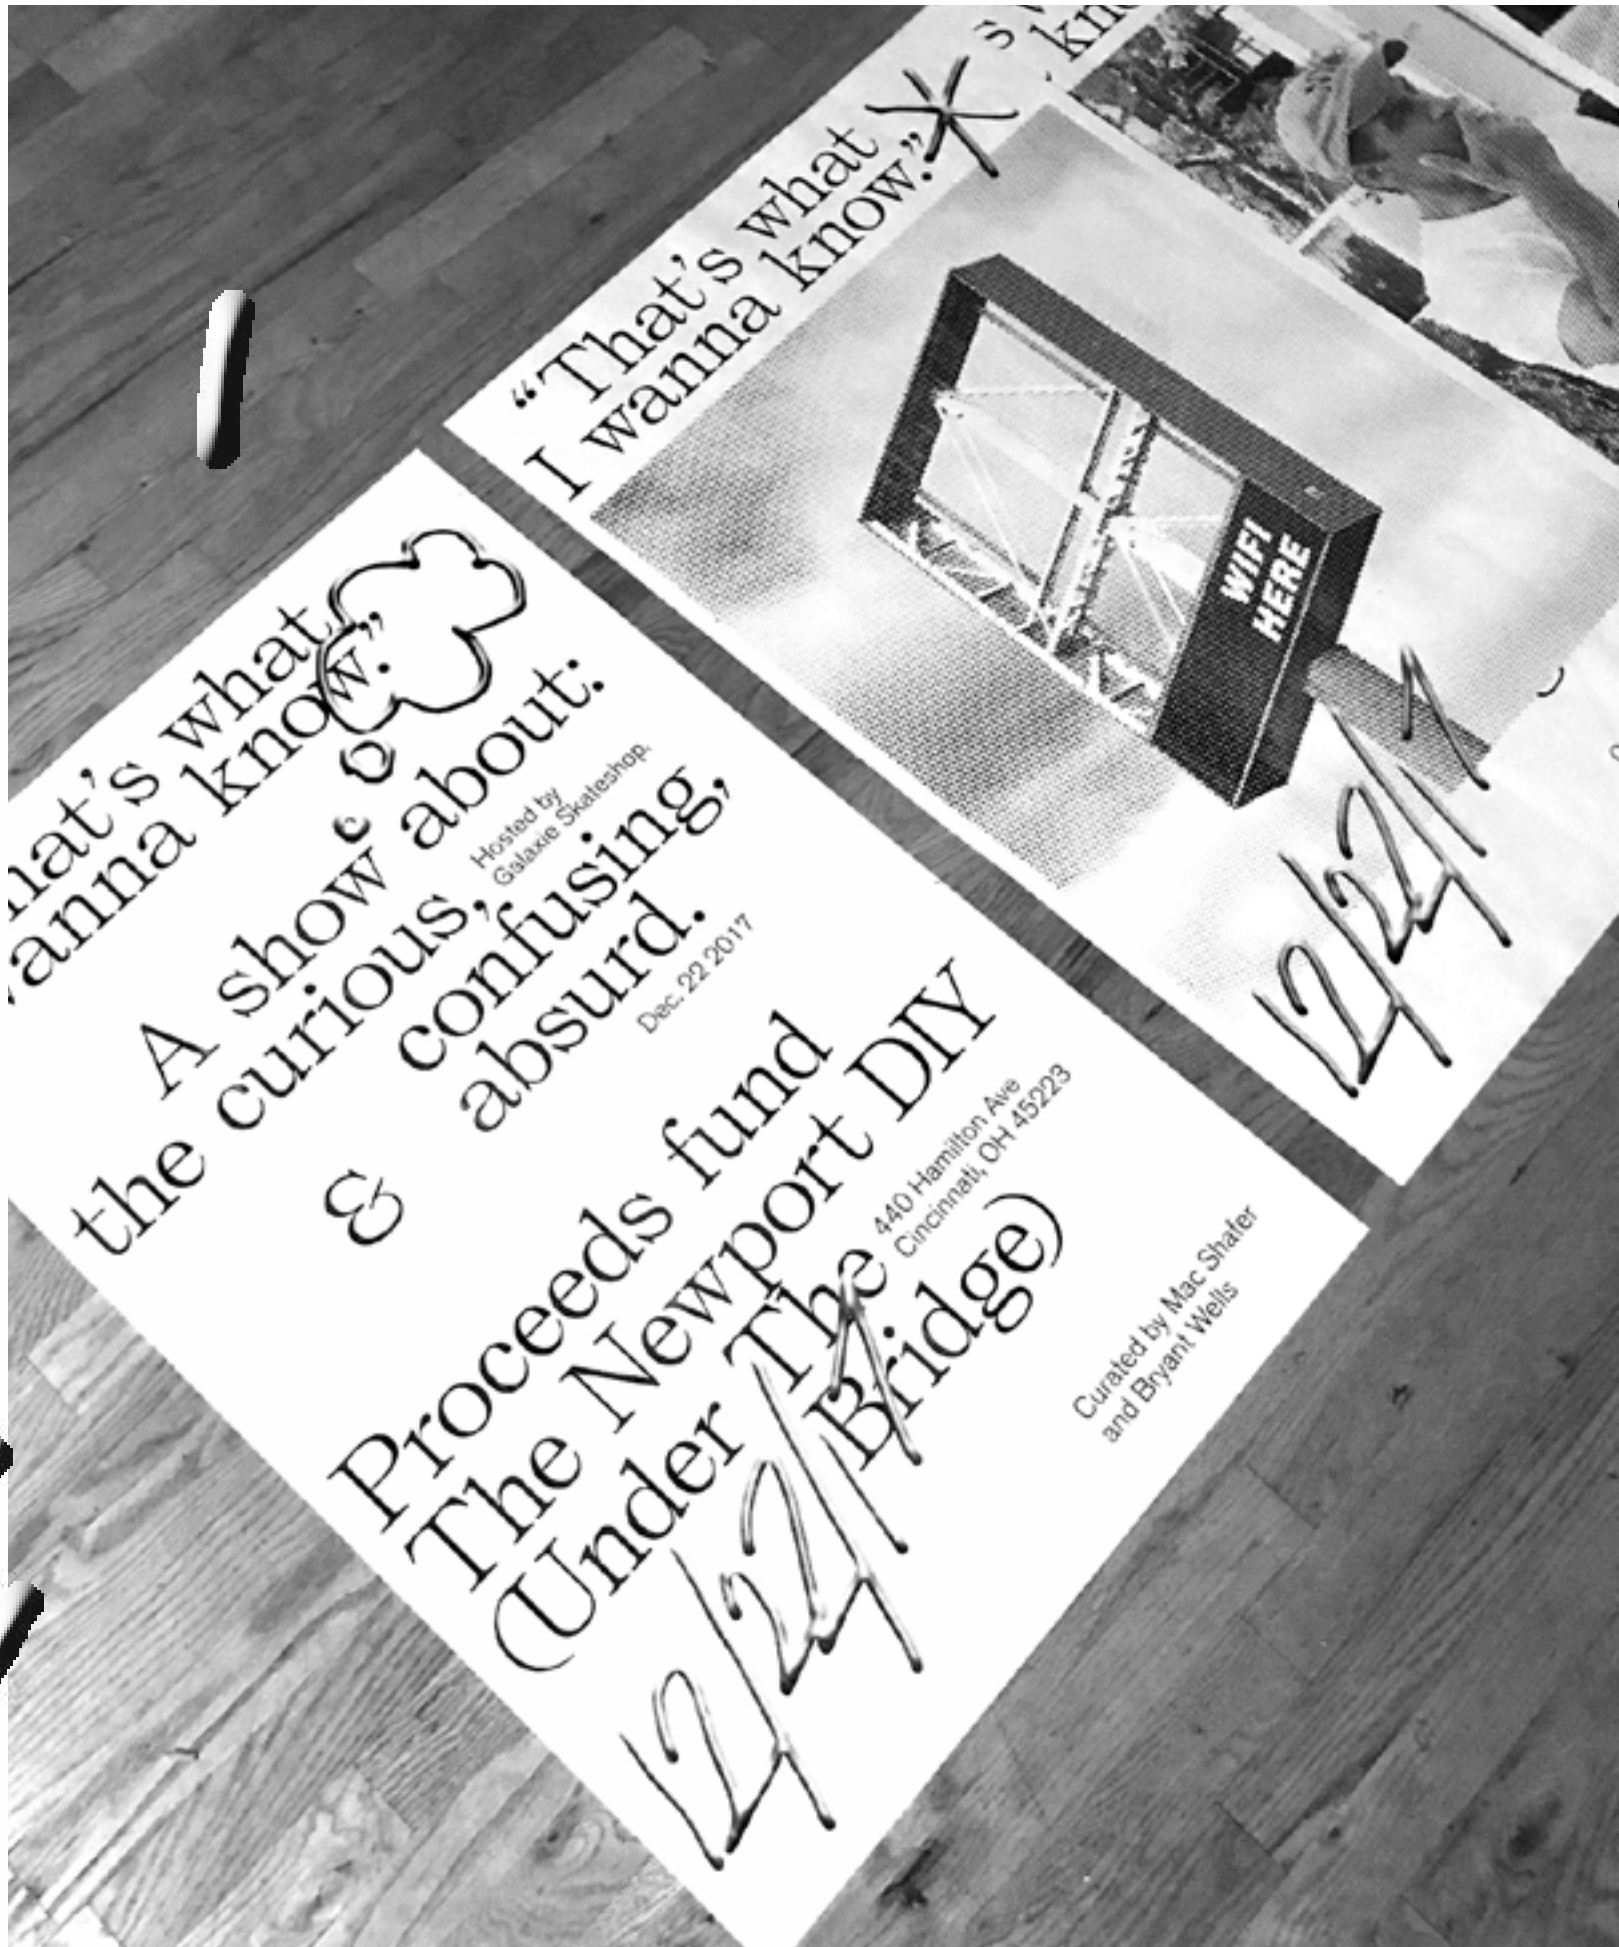 “That’s what
I wanna know.”
WIFI
HERE
12/22/17
hat’s what
anna know.”
A show about:
the curious,
Hosted by
Galaxie Skateshop.
confusing,
& absurd.
Dec. 22 2017
Proceeds fund
The Newport DIY
(Under The
Bridge)
440 Hamilton Ave
Cincinnati, OH 45223
Curated by Mac Shafer
and Bryant Wells
12/22/17